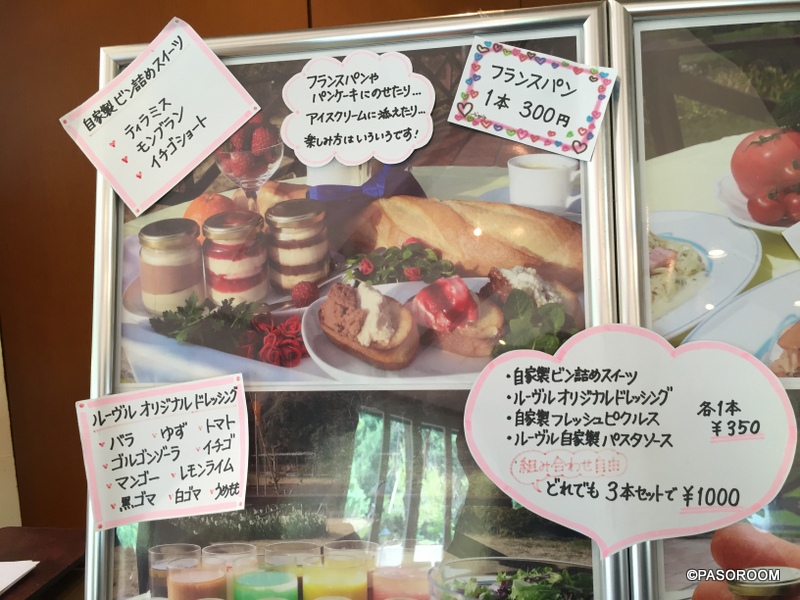 自家製ビン詰めスイーツ
ティラミス
モンブラン
イチゴショート
フランスパンや
パンケーキにのせたり…
アイスクリームに添えたり…
楽しみ方はいろいろです!
フランスパン
1本 300円
ルーヴル オリジナル ドレッシング
バラ ゆず トマト
ゴルゴンゾーラ イチゴ
マンゴー レモンライム
黒ゴマ 白ゴマ うめもも
・自家製ビン詰めスイーツ
・ルーヴルオリジナルドレッシング
・自家製フレッシュピクルス
・ルーヴル自家製パスタソース
各1本
¥350
組み合わせ自由
どれでも 3本セットで ¥1000
©PASOROOM